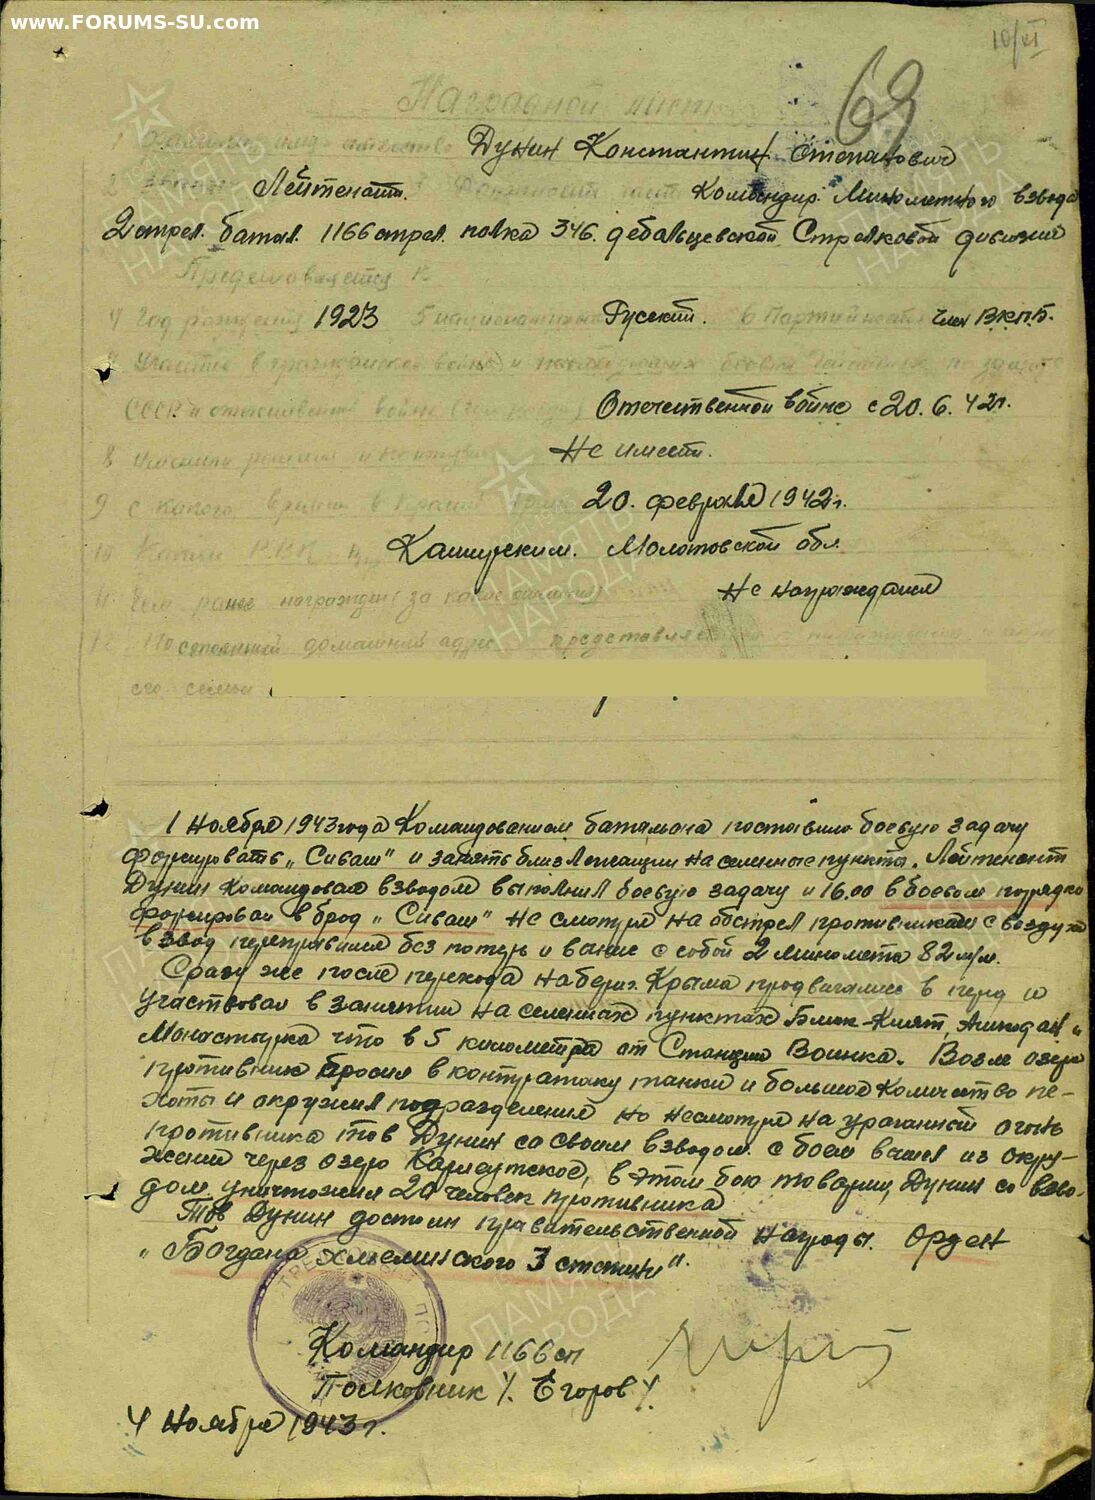 www.FORUMS-SU.com
10/XI
69
Наградной лист
1 Фамилия имя отчество Дунин Константин Степанович
2 звание Лейтенант. Командир Минометного взвода
2 стрел. батал. 1166 стрел. полка 346. дебальцевской Стрелковой дивизии
Представляется к
4 Год рождения 1923 5 национальность Русский. 6 Партийность Член ВКПБ.
7 Участие в гражданской войне и последующих боевых действиях по защите
СССР и отечественной войне Отечественной войне с 20.6.42г.
8 ранения и контузии Не имеет.
9 с какого времени в Красной армии 20. февраля 1942г.
10 Каким РВК Каширским. Молотовской обл.
11 Чем ранее награжден (за какие отличия) Не награждался
12 Постоянный домашний адрес представляемого к награждению
его семьи
1 Ноября 1943 года Командованием баталъона поставило боевую задачу
форсировать „Сиваш" и занять близ Лежащии населенные пункты. Лейтенант
Дунин командовал взводом выполнил боевую задачу и 16.00 в боевом порядке
форсировал в брод „Сиваш" не смотря на обстрел противником с воздуха
взвод переправился без потерь и вынес с собой 2 миномета 82 м/м.
Сразу же после перехода на берег. Крыма продвигались в перед и
участвовал в занятии населеных пунктах
Монастырка что в 5 километра от Станции Воинка. Возле озера
противник бросил в контратаку танки и большое количество пе-
хоты и окружил подразделения но несмотря на ураганный огонь
противника тов Дунин со своим взводом с боем вышел из окру-
жений через озеро в этом бою товарищ Дунин со взво-
дом уничтожил 20 человек противника
Тов Дунин достоин правительственной награды. Орден
„Богдана хмелинского 3 степини".
Командир 1166 сп
Полковник /. Егоров /.
4 Ноября 1943 г.
ПАМЯТЬ
НАРОДА